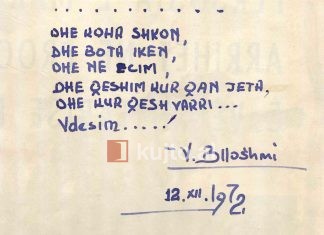 . . . . . . . . . . . .
DHE KOHA SHKON,
DHE BOTA IKEN,
DHE NE ECIM,
DHE QESHIM KUR QAN JETA,
DHE KUR QESH VARRI...
Vdesim.....!
kujto.al
V. Blloshmi
12.XII.1972.